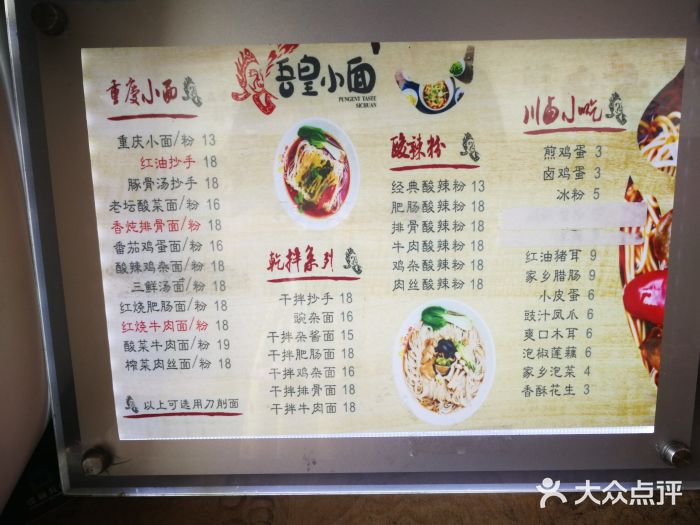 吾皇小面
PUNGENT TASTE
SICHUAN
重慶小面
重庆小面/粉 13
红油抄手 18
豚骨汤抄手 18
老坛酸菜面/粉 16
香炖排骨面/粉 18
番茄鸡蛋面/粉 16
酸辣鸡杂面/粉 18
三鲜汤面/粉 18
红烧肥肠面/粉 18
红烧牛肉面/粉 18
酸菜牛肉面/粉 19
榨菜肉丝面/粉 18
以上可选用刀削面
乾拌系列
干拌抄手 18
豌杂面 16
干拌杂酱面 15
干拌肥肠面 18
干拌鸡杂面 16
干拌排骨面 18
干拌牛肉面 18
酸辣粉
经典酸辣粉 13
肥肠酸辣粉 18
排骨酸辣粉 18
牛肉酸辣粉 18
鸡杂酸辣粉 18
肉丝酸辣粉 18
川卤小吃
煎鸡蛋 3
卤鸡蛋 3
冰粉 5
红油猪耳 9
家乡腊肠 9
小皮蛋 6
豉汁凤爪 6
爽口木耳 6
泡椒莲藕 6
家乡泡菜 4
香酥花生 3
大众点评